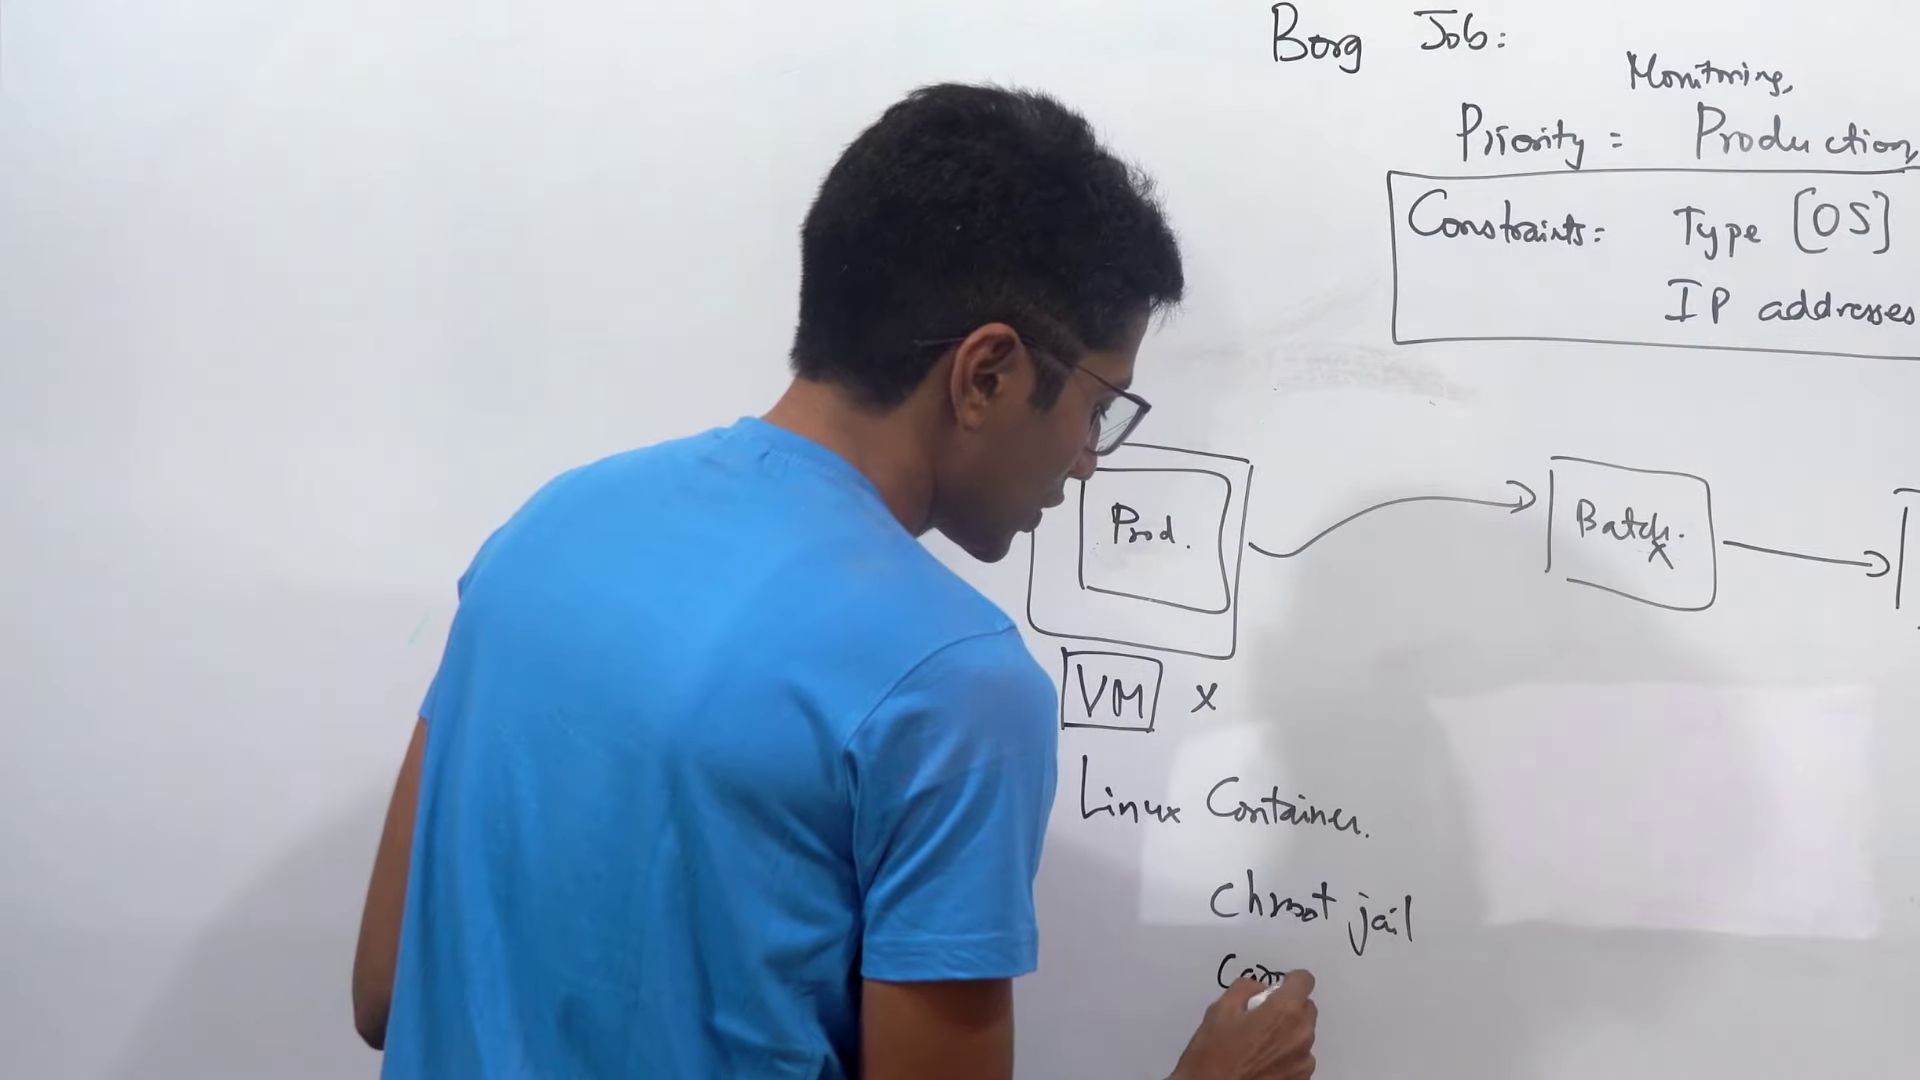 Borg Job:
Monitoring,
Priority = Production,
Constraints: Type [OS]
IP addresses
Prod.
Batch.
x
VM x
Linux Container.
Chroot jail